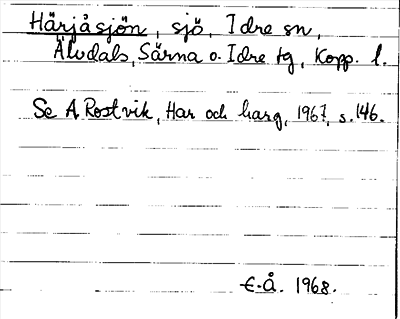 Härjåsjön, sjö, Idre sn,
Älvdals, Särna o. Idre tg, Kopp. l.
Se A. Rostvik, Har och harg, 1967, s. 146.
E.Å. 1968.